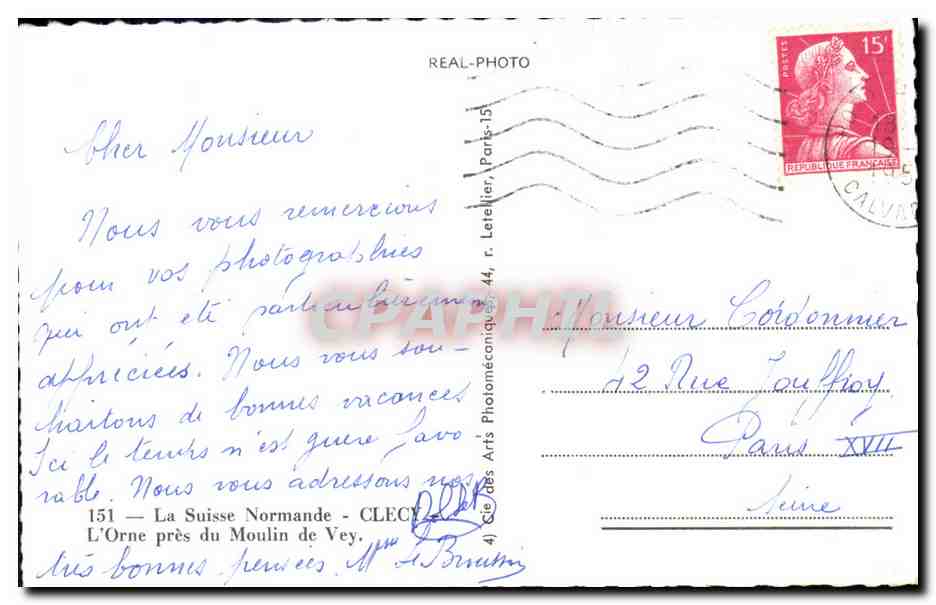 REAL-PHOTO
POSTES
15F
REPUBLIQUE FRANÇAISE
CALVAD
Cher Monsieur
Nous vous remercions
pour vos photographies
qui ont été particulièrement
appréciées. Nous vous sou-
haitons de bonnes vacances
Ici le temps n'est guère favo
rable. Nous vous adressons nos
très bonnes pensées. Mme
151 — La Suisse Normande - CLECY
L'Orne près du Moulin de Vey.
4) Cie des Arts Photomécaniques, 44, r. Letellier, Paris-15e
CPAPHIL
Monsieur Cordonnier
42 Rue Jouffroy
Paris XVII
Seine